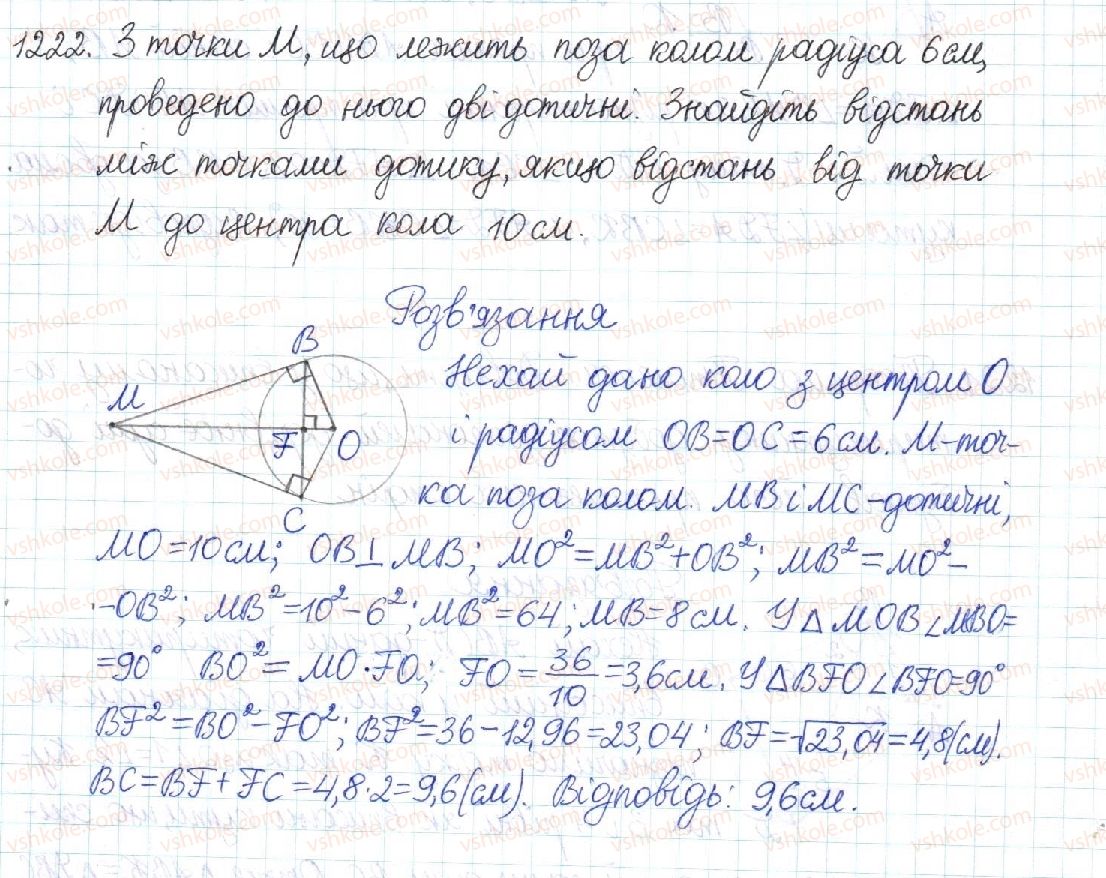 1222. З точки М, що лежить поза колом радіуса 6 см,
проведено до нього дві дотичні. Знайдіть відстань
між точками дотику, якщо відстань від точки
М до центра кола 10 см.
Розв'язання
B
M
F
O
C
Нехай дано коло з центром О
і радіусом OB=OC=6см. М-точ-
ка поза колом. MB і MC-дотичні,
MO=10см; OB⊥MB; MO²=MB²+OB²; MB²=MO²-
-OB²; MB²=10²-6²; MB²=64; MB=8см. У △MOB ∠MBO=
=90° BO²=MO·FO; FO=36/10=3,6см. У △BFO ∠BFO=90°
BF²=BO²-FO²; BF²=36-12,96=23,04; BF=√23,04=4,8(см).
BC=BF+FC=4,8·2=9,6(см). Відповідь: 9,6см.
vshkole.com